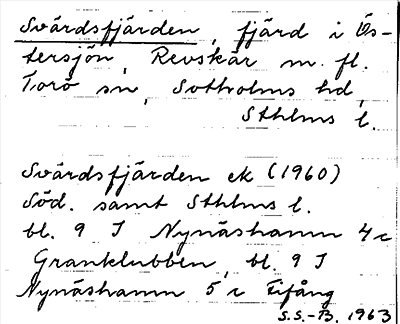 Svärdsfjärden, fjärd i Ös-
tersjön, Revskär m. fl.
Torö sn, Sotholms hd,
Sthlms l.
Svärdsfjärden ek (1960)
Söd. samt Sthlms l.
bl. 9 I Nynäshamn 4 c
Granklubben, bl. 9 I
Nynäshamn 5 c Fifång
S.S.-B. 1963